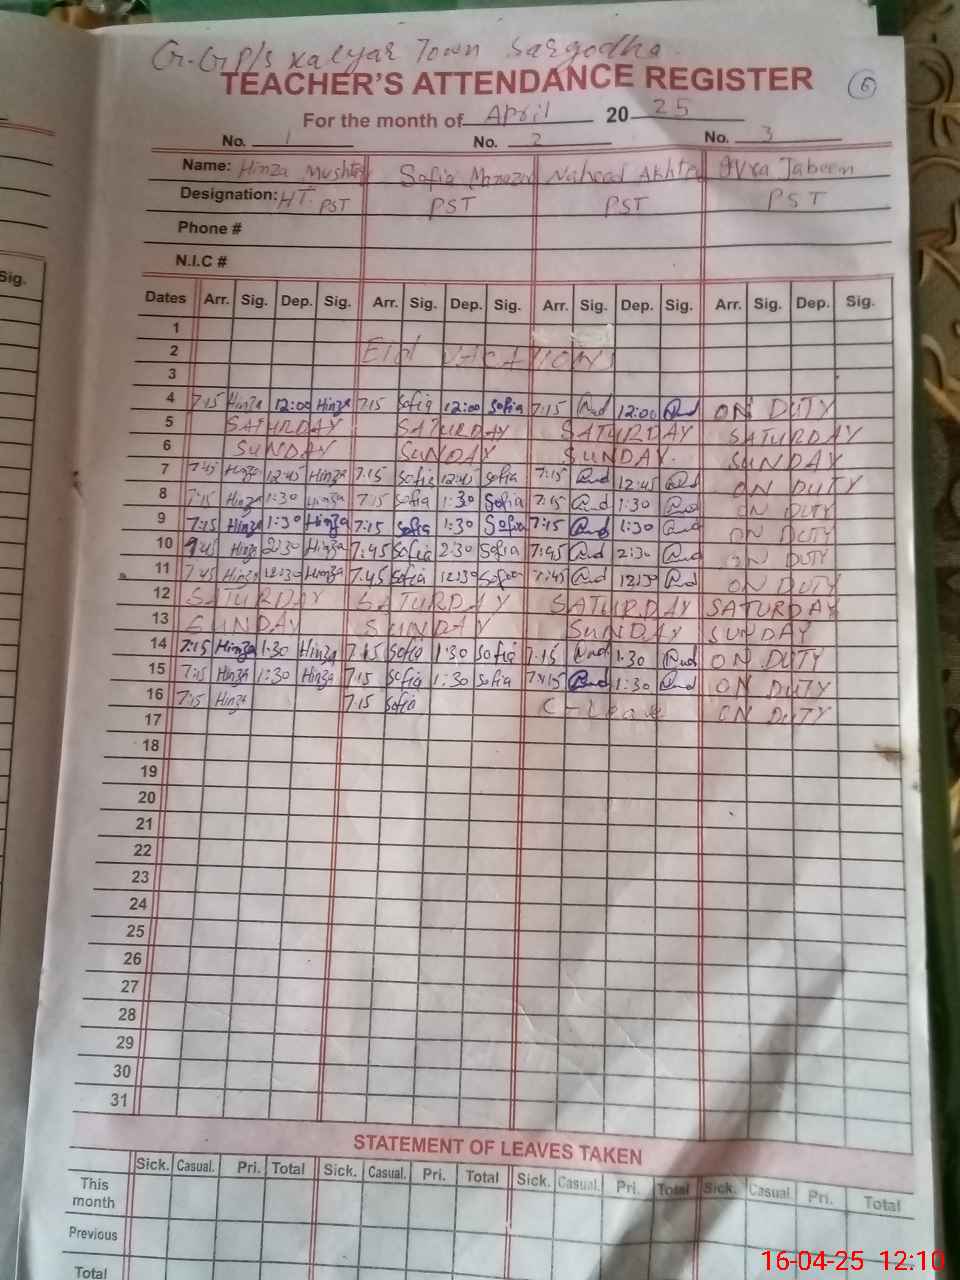 G.G P/s Kalyar Town Sargodha.
TEACHER'S ATTENDANCE REGISTER 6
For the month of April 20 25
No. 1 No. 2 No. 3
Name: Hinza Mushtaq Sofia Manazar Naheed Akhtar Iqra Jabeen
Designation: HT. PST PST PST PST
Phone #
N.I.C #
Sig.
Dates Arr. Sig. Dep. Sig. Arr. Sig. Dep. Sig. Arr. Sig. Dep. Sig. Arr. Sig. Dep. Sig.
1
2 Eid VACATIONS
3
4 7:15 Hinza 12:00 Hinza 7:15 Sofia 12:00 Sofia 7:15 12:00 ON DUTY
5 SATURDAY SATURDAY SATURDAY SATURDAY
6 SUNDAY SUNDAY SUNDAY. SUNDAY
7 Hinza 12:45 Hinza 7:15 Sofia 12:45 Sofia 7:15 12:45 ON DUTY
8 7:15 Hinza 1:30 Hinza 7:15 Sofia 1:30 Sofia 7:15 1:30 ON DUTY
9 7:15 Hinza 1:30 Hinza 7:15 Sofia 1:30 Sofia 7:15 1:30 ON DUTY
10 Hinza 2:30 Hinza 7:45 Sofia 2:30 Sofia 7:45 2:30 ON DUTY
11 7:45 Hinza 12:30 Hinza 7:45 Sofia 12:30 Sofia 7:45 12:30 ON DUTY
12 SATURDAY SATURDAY SATURDAY SATURDAY
13 SUNDAY SUNDAY SUNDAY SUNDAY
14 7:15 Hinza 1:30 Hinza 7:15 Sofia 1:30 Sofia 7:15 1:30 ON DUTY
15 7:15 Hinza 1:30 Hinza 7:15 Sofia 1:30 Sofia 7:15 1:30 ON DUTY
16 7:15 Hinza 7:15 Sofia C-Leave ON DUTY
17
18
19
20
21
22
23
24
25
26
27
28
29
30
31
STATEMENT OF LEAVES TAKEN
Sick. Casual. Pri. Total Sick. Casual. Pri. Total Sick. Casual. Pri. Total Sick. Casual Pri. Total
This month
Previous
Total
16-04-25 12:10